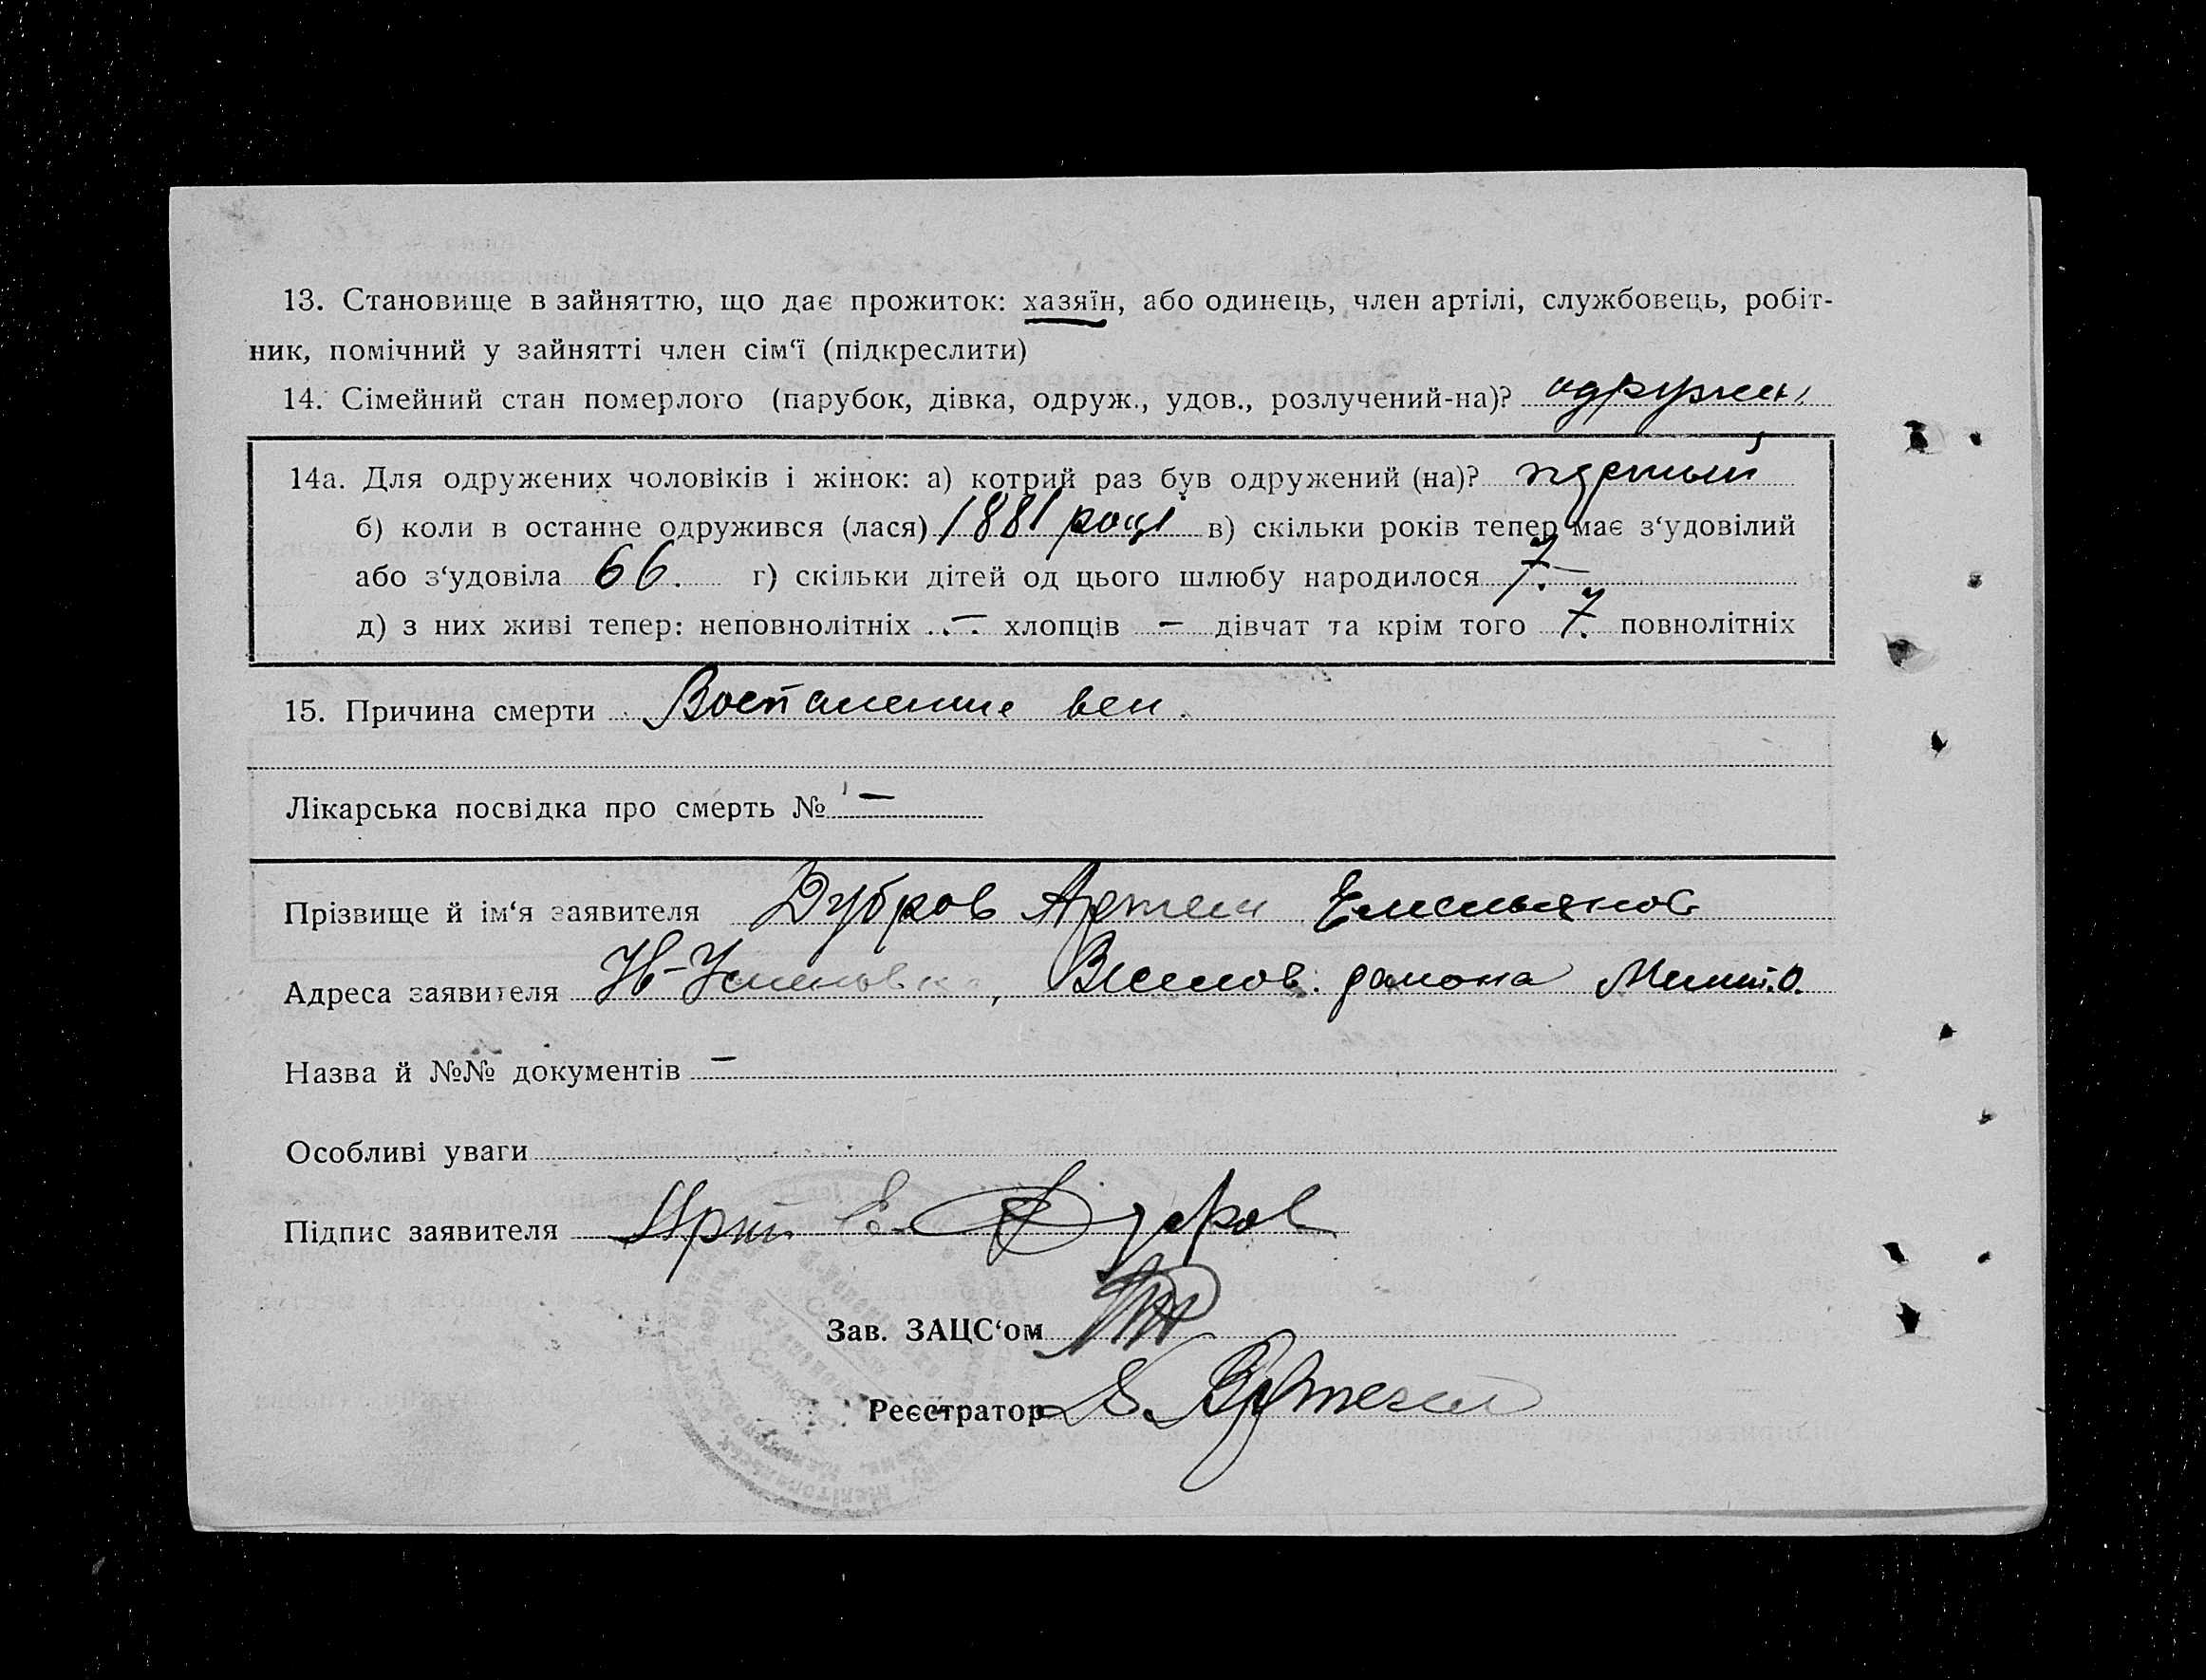 13. Становище в зайняттю, що дає прожиток: хазяїн, або одинець, член артілі, службовець, робіт-
ник, помічний у зайнятті член сім‘ї (підкреслити)
14. Сімейний стан померлого (парубок, дівка, одруж., удов., розлучений-на)? одружен
14а. Для одружених чоловіків і жінок: а) котрий раз був одружений (на)?
б) коли в останнє одружився (лася) 1881 році в) скільки років тепер має з‘удовілий
або з‘удовіла 66. г) скільки дітей од цього шлюбу народилося 7. –
д) з них живі тепер: неповнолітніх – хлопців – дівчат та крім того 7. повнолітніх
15. Причина смерти Воспаление вен.
Лікарська посвідка про смерть № –
Прізвище й ім‘я заявителя Дубров Артем Емельянов
Адреса заявителя Н-Успеновка, Веселов. района Мелит.О.
Назва й №№ документів –
Особливі уваги
Підпис заявителя Арт Е Дубров
Зав. ЗАЦС‘ом
Реєстратор